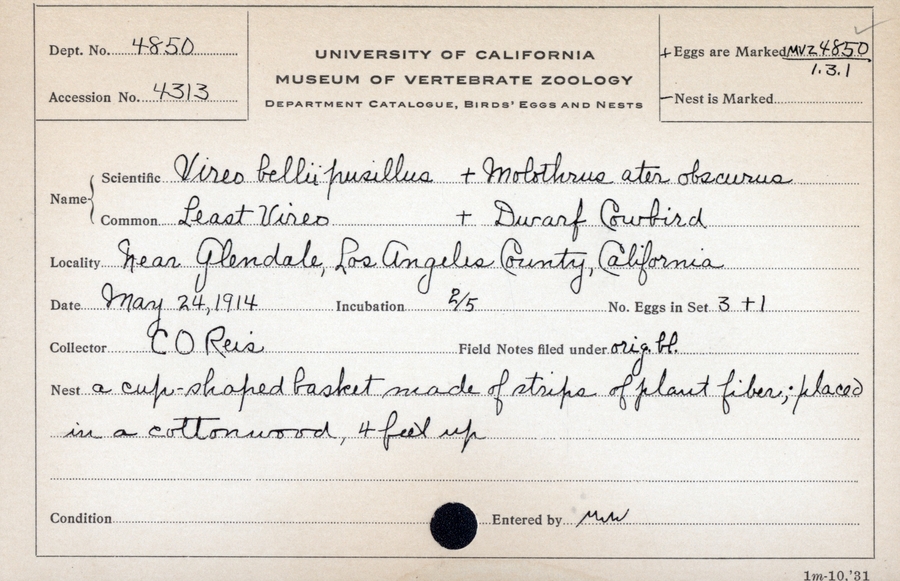 Dept. No. 4850
Accession No. 4313
UNIVERSITY OF CALIFORNIA
MUSEUM OF VERTEBRATE ZOOLOGY
DEPARTMENT CATALOGUE, BIRDS' EGGS AND NESTS
+ Eggs are Marked MVZ 4850
1.3.1
— Nest is Marked
Name { Scientific Vireo bellii pusillus + Molothrus ater obscurus
Common Least Vireo + Dwarf Cowbird
Locality Near Glendale, Los Angeles County, California
Date May 24, 1914 Incubation 2/5 No. Eggs in Set 3 + 1
Collector C O Reis Field Notes filed under orig. bl.
Nest a cup-shaped basket made of strips of plant fiber; placed
in a cottonwood, 4 feet up
Condition Entered by
1m-10,'31